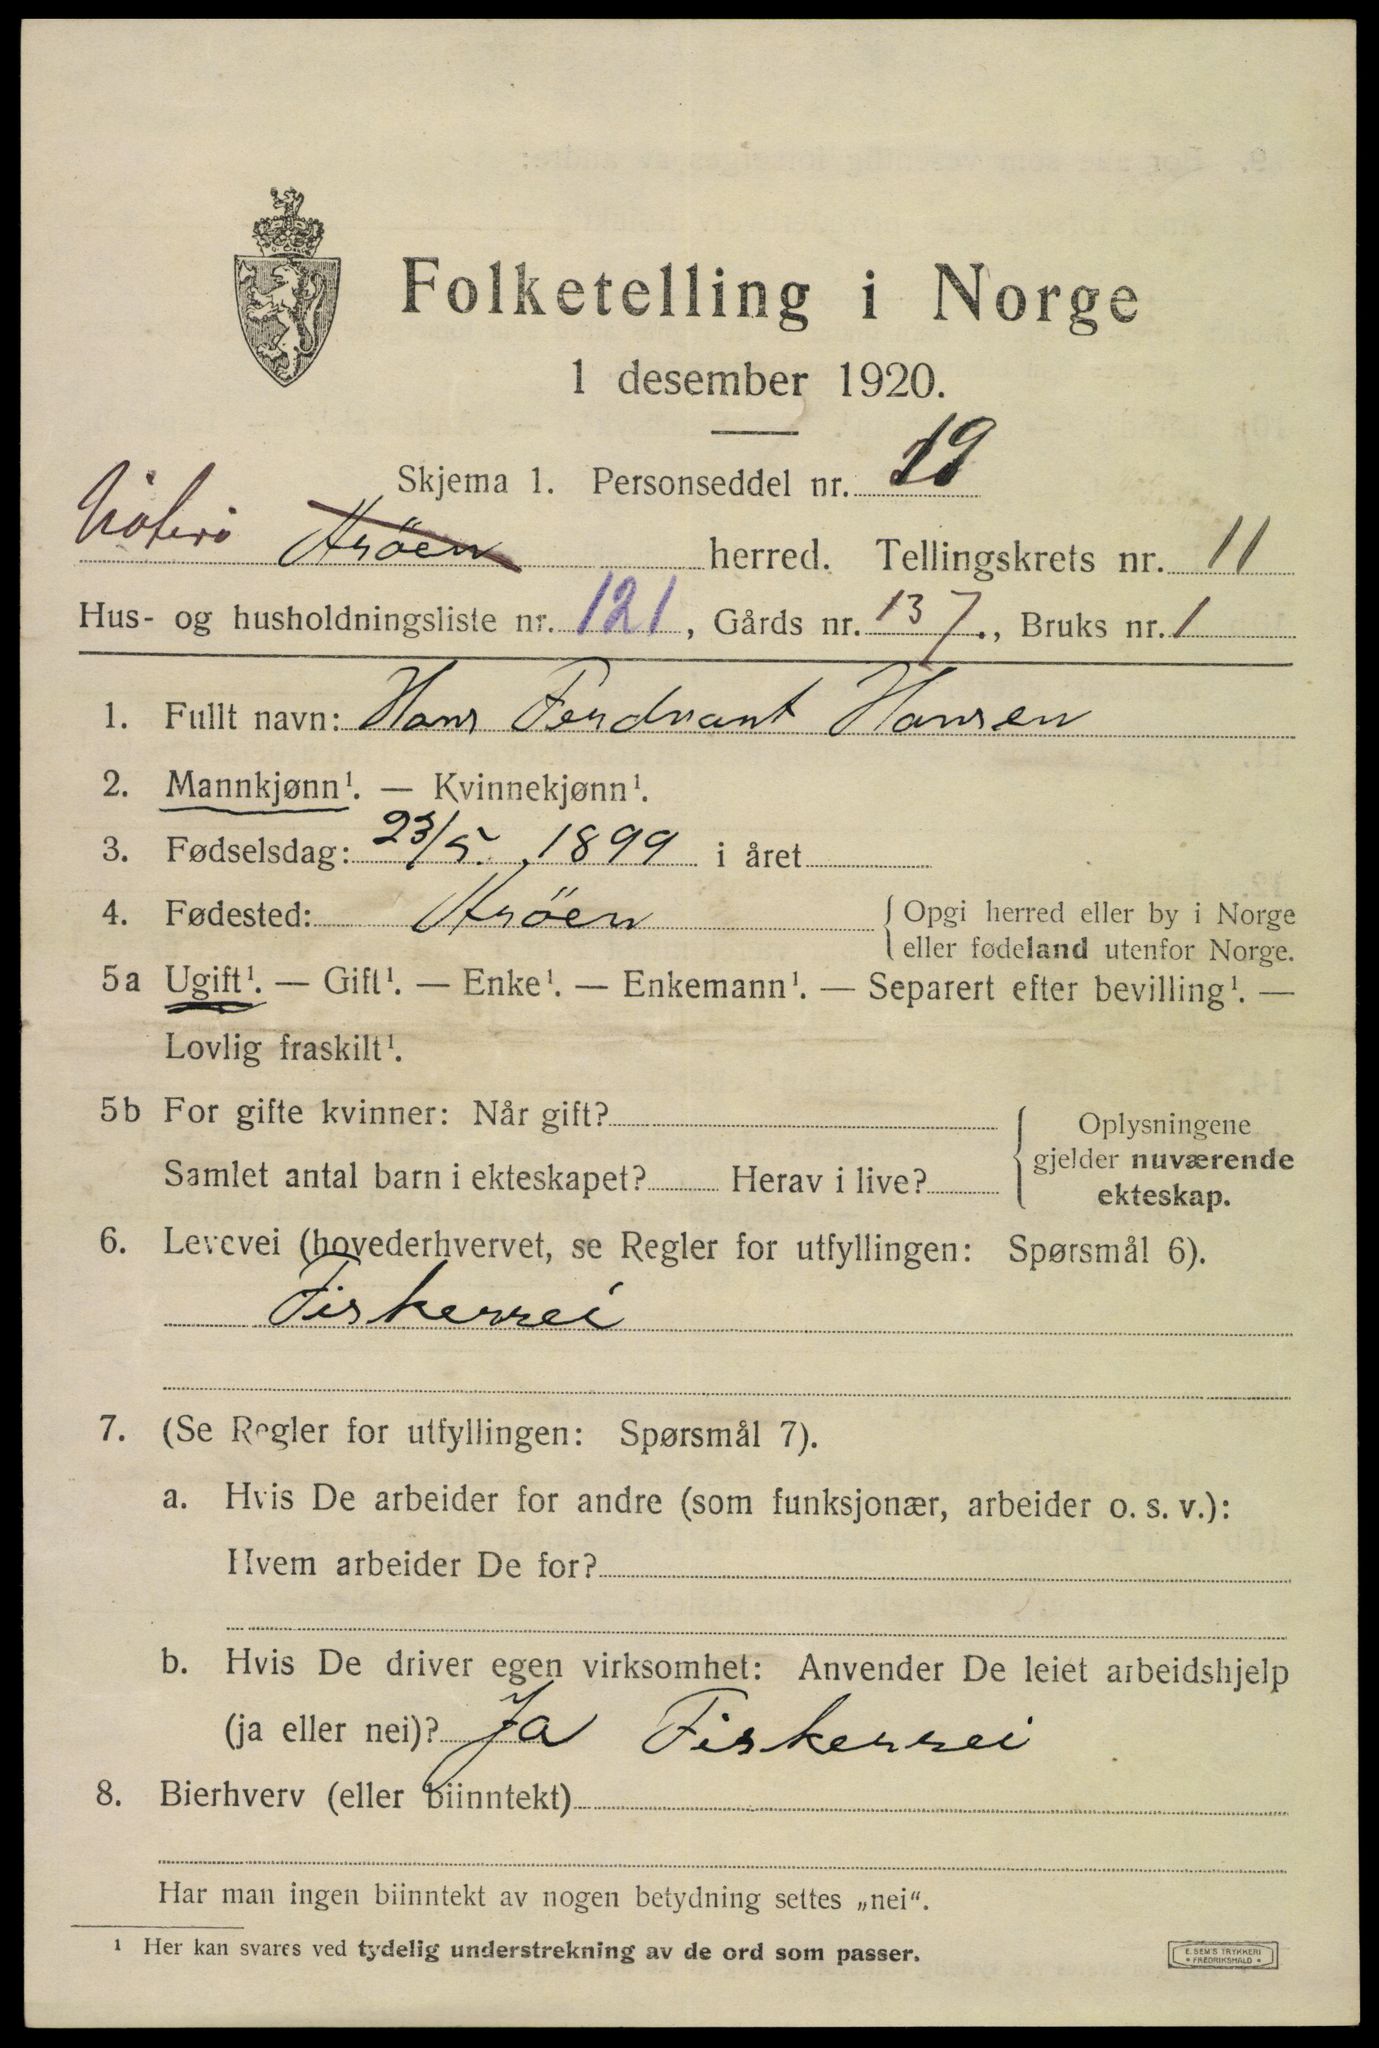 Folketelling i Norge
1 desember 1920.
Skjema 1. Personseddel nr. 19
Nøterø Arøen herred. Tellingskrets nr. 11
Hus- og husholdningsliste nr. 121, Gårds nr. 137., Bruks nr. 1
1. Fullt navn: Hans Ferdnant Hansen
2. Mannkjønn¹. — Kvinnekjønn¹.
3. Fødselsdag: 23/5. 1899 i året
4. Fødested: Arøen { Opgi herred eller by i Norge
eller fødeland utenfor Norge.
5a Ugift¹. — Gift¹. — Enke¹. — Enkemann¹. — Separert efter bevilling¹. —
Lovlig fraskilt¹.
5b For gifte kvinner: Når gift?
Samlet antal barn i ekteskapet? Herav i live?
{ Oplysningene
gjelder nuværende
ekteskap.
6. Levevei (hovederhvervet, se Regler for utfyllingen: Spørsmål 6).
Fiskerrei
7. (Se Regler for utfyllingen: Spørsmål 7).
a. Hvis De arbeider for andre (som funksjonær, arbeider o. s. v.):
Hvem arbeider De for?
b. Hvis De driver egen virksomhet: Anvender De leiet arbeidshjelp
(ja eller nei)? Ja Fiskerrei
8. Bierhverv (eller biinntekt)
Har man ingen biinntekt av nogen betydning settes „nei“.
¹ Her kan svares ved tydelig understrekning av de ord som passer.
E. SEM'S TRYKKERI
• FREDRIKSHALD •